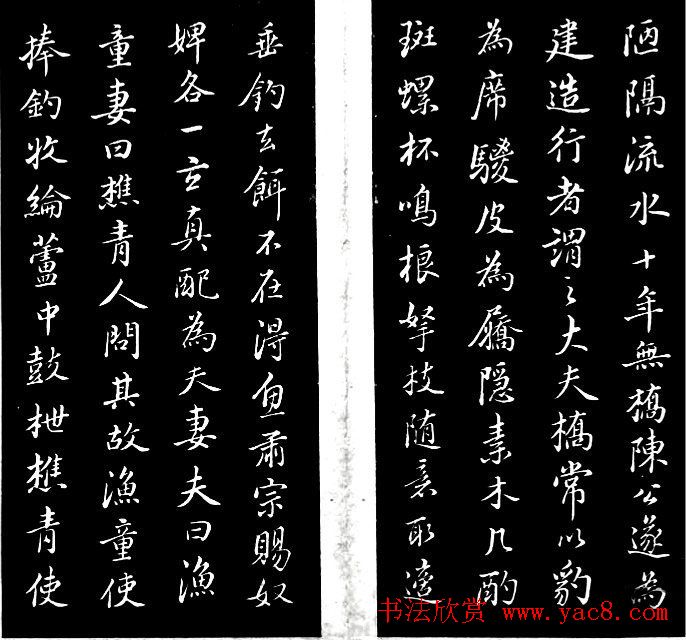 陋隔流水十年無橋陳公遂為
建造行者謂之大夫橋常以豹
為席騣皮為屩隱素木几酌
斑螺杯鳴桹拏枝随意取適
垂釣去餌不在得魚肅宗賜奴
婢各一玄真配為夫妻夫曰漁
童妻曰樵青人問其故漁童使
捧釣收綸蘆中鼓枻樵青使
书法欣赏 www.yac8.com